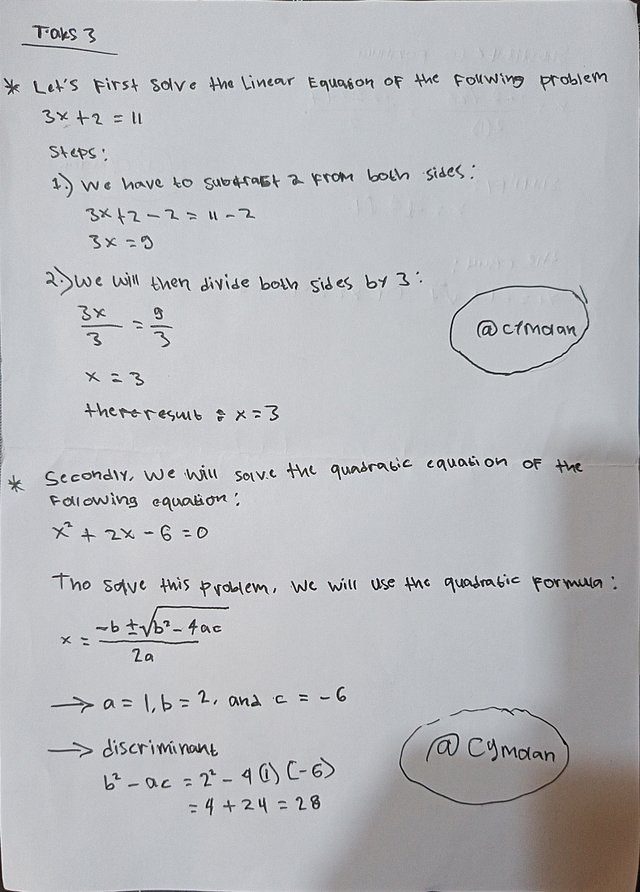 Taks 3
* Let's First solve the Linear Equasion of the Follwing problem
3x + 2 = 11
Steps:
1.) We have to subtrast 2 from both sides:
3x + 2 - 2 = 11 - 2
3x = 9
2.) We will then divide both sides by 3:
3x/3 = 9/3
@cymolan
x = 3
there result : x = 3
* Secondly, We will solve the quadratic equation of the
Following equation:
x² + 2x - 6 = 0
Tho solve this problem, We will use the quadratic Formula:
x = -b ± √b² - 4ac / 2a
→ a = 1, b = 2, and c = -6
→ discriminant
@Cymolan
b² - ac = 2² - 4(1)(-6)
= 4 + 24 = 28